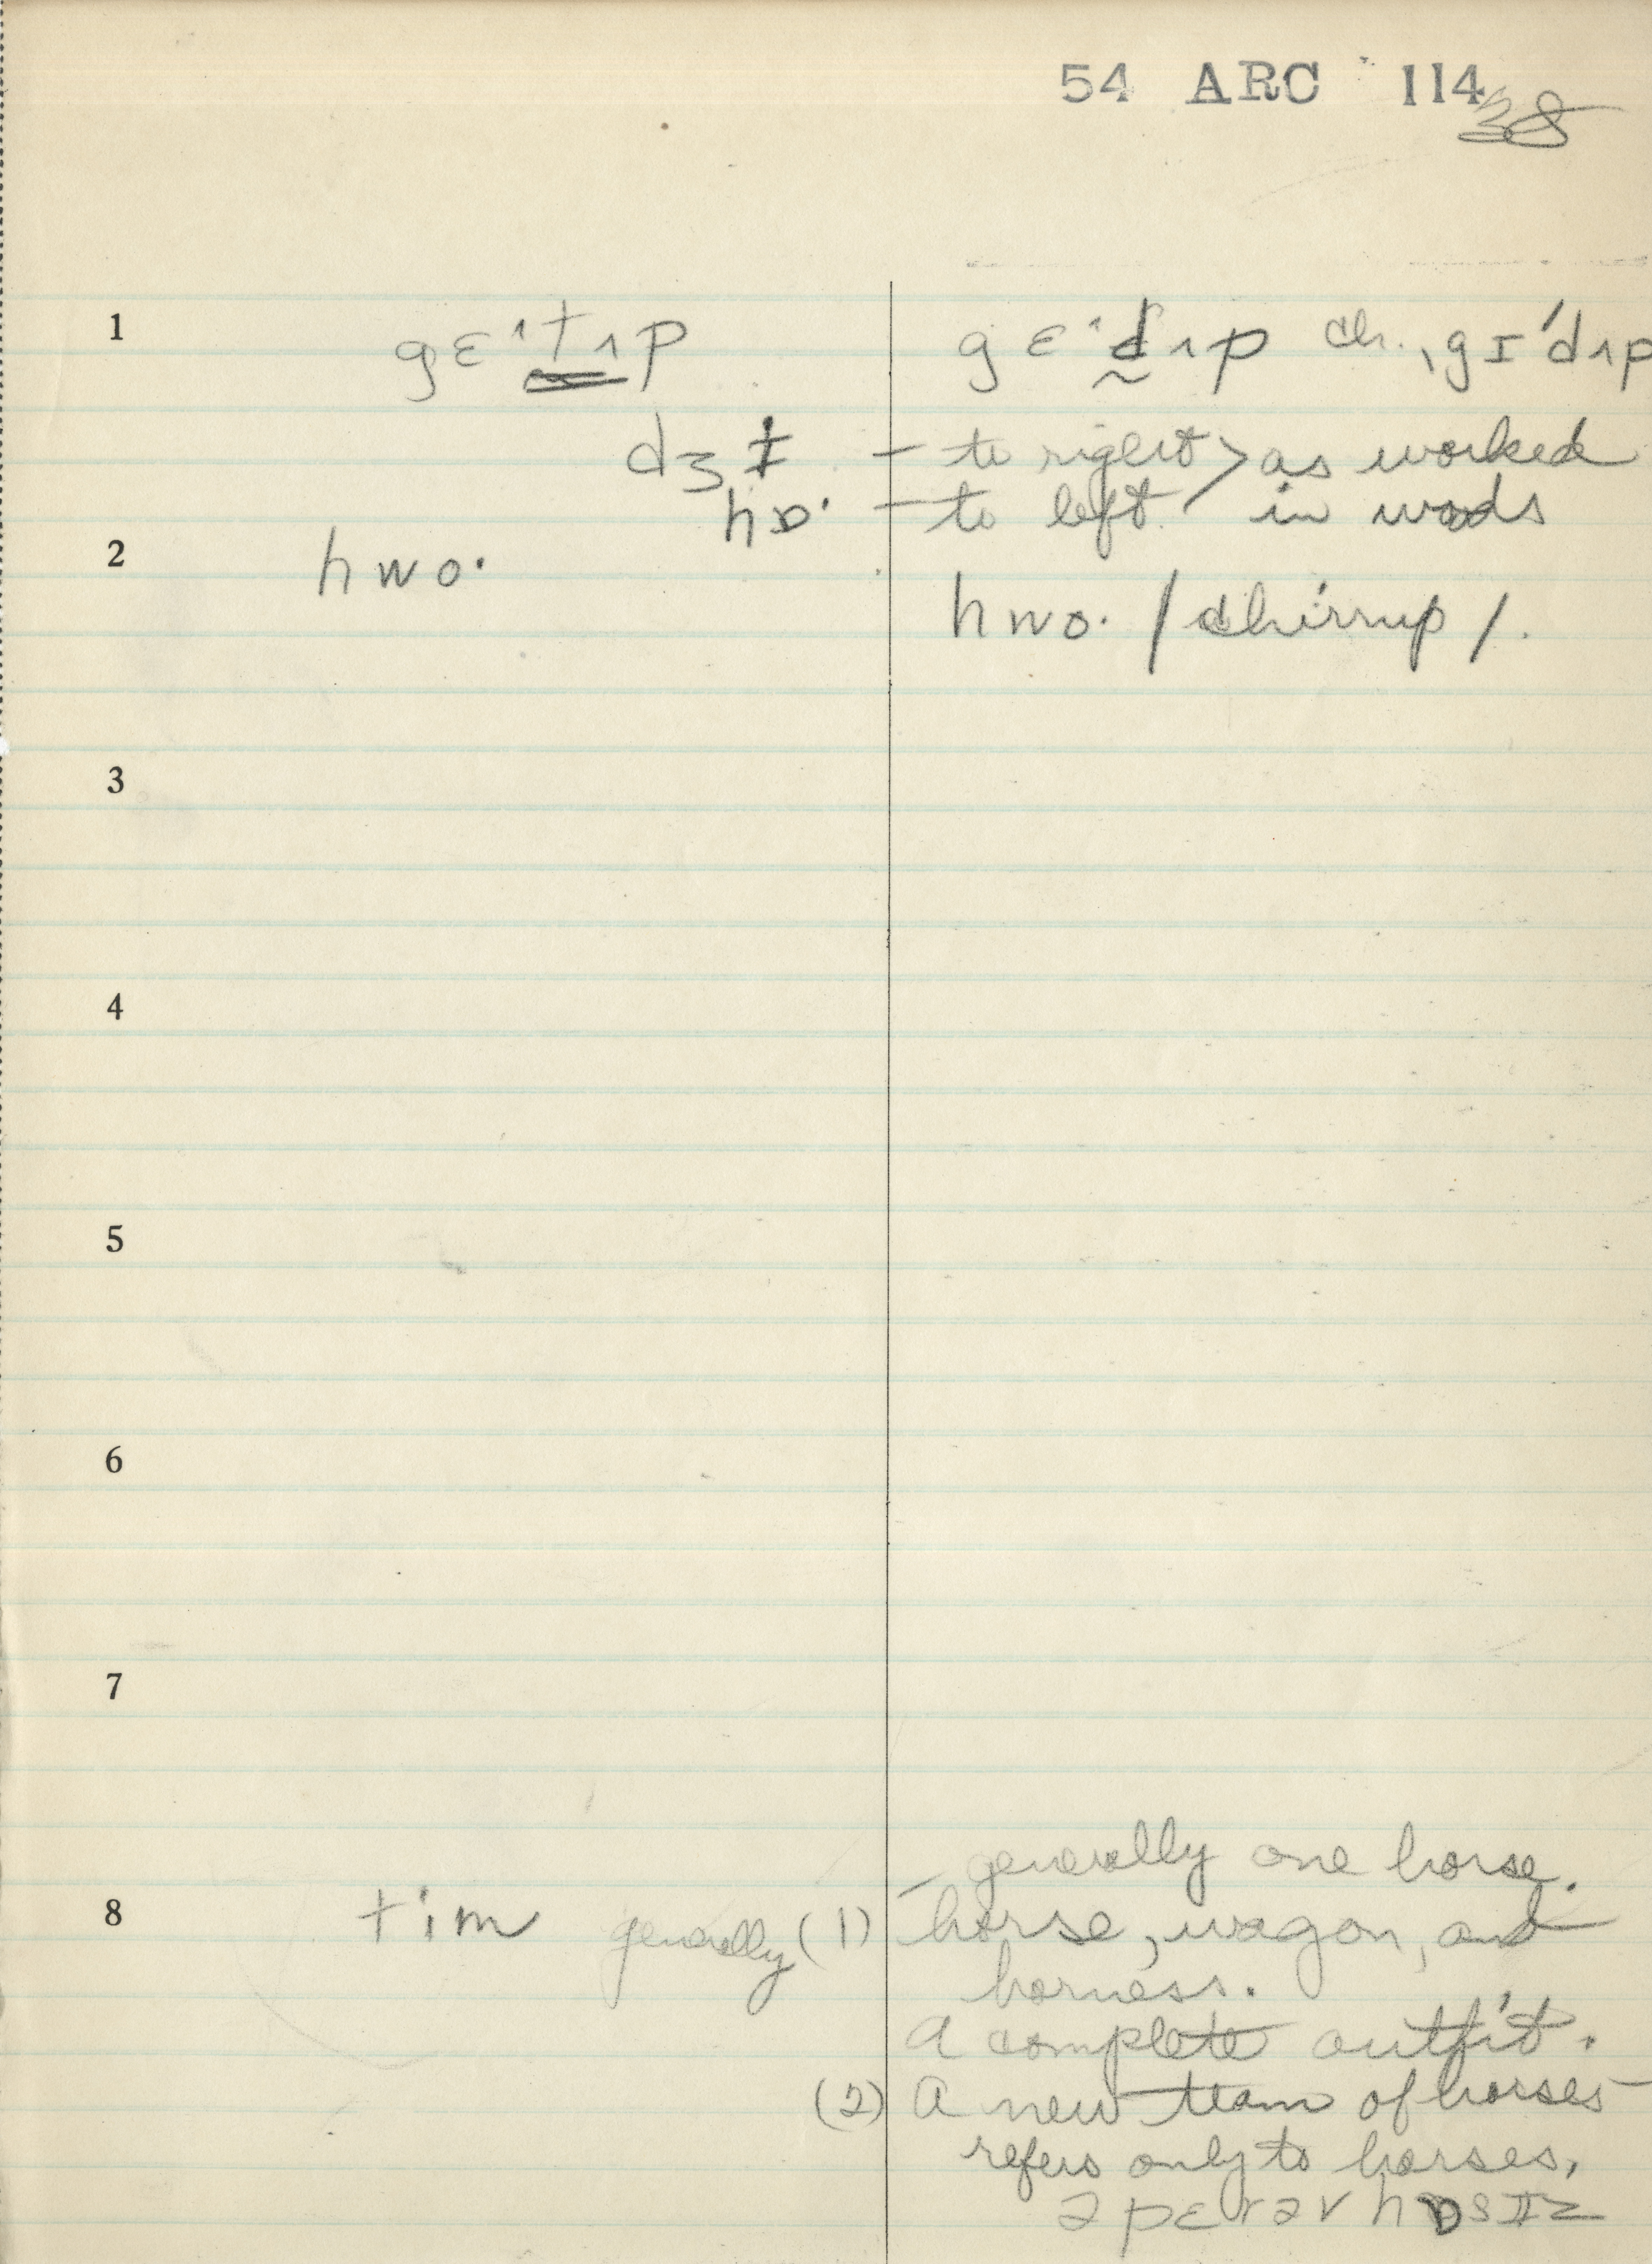 54 ARC 114
38
1 gɛˑtʌp gɛˑd̰ʌp ch., gɪ'dʌp
dʒɪ – to right > as worked
hɒˑ – to left in woods
2 hwoˑ
hwoˑ /chirrup/.
3
4
5
6
7
– generally one horse.
8 tim generally (1) horse, wagon, and
harness.
A complete outfit.
(2) A new team of horses –
refers only to horses,
ə pɛr əv hɒsɪz